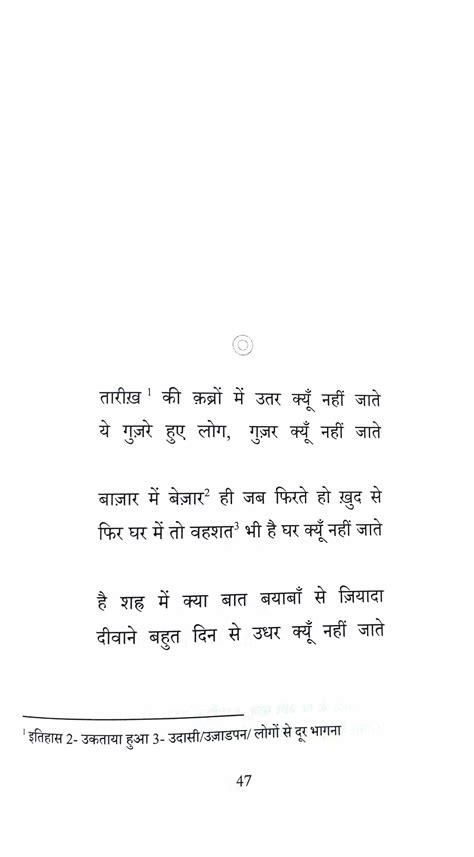 तारीख़ ¹ की क़ब्रों में उतर क्यूँ नहीं जाते
ये गुज़रे हुए लोग, गुज़र क्यूँ नहीं जाते
बाज़ार में बेज़ार² ही जब फिरते हो ख़ुद से
फिर घर में तो वहशत³ भी है घर क्यूँ नहीं जाते
है शह्र में क्या बात बयाबाँ से ज़ियादा
दीवाने बहुत दिन से उधर क्यूँ नहीं जाते
¹ इतिहास 2- उकताया हुआ 3- उदासी/उज़ाडपन/ लोगों से दूर भागना
47